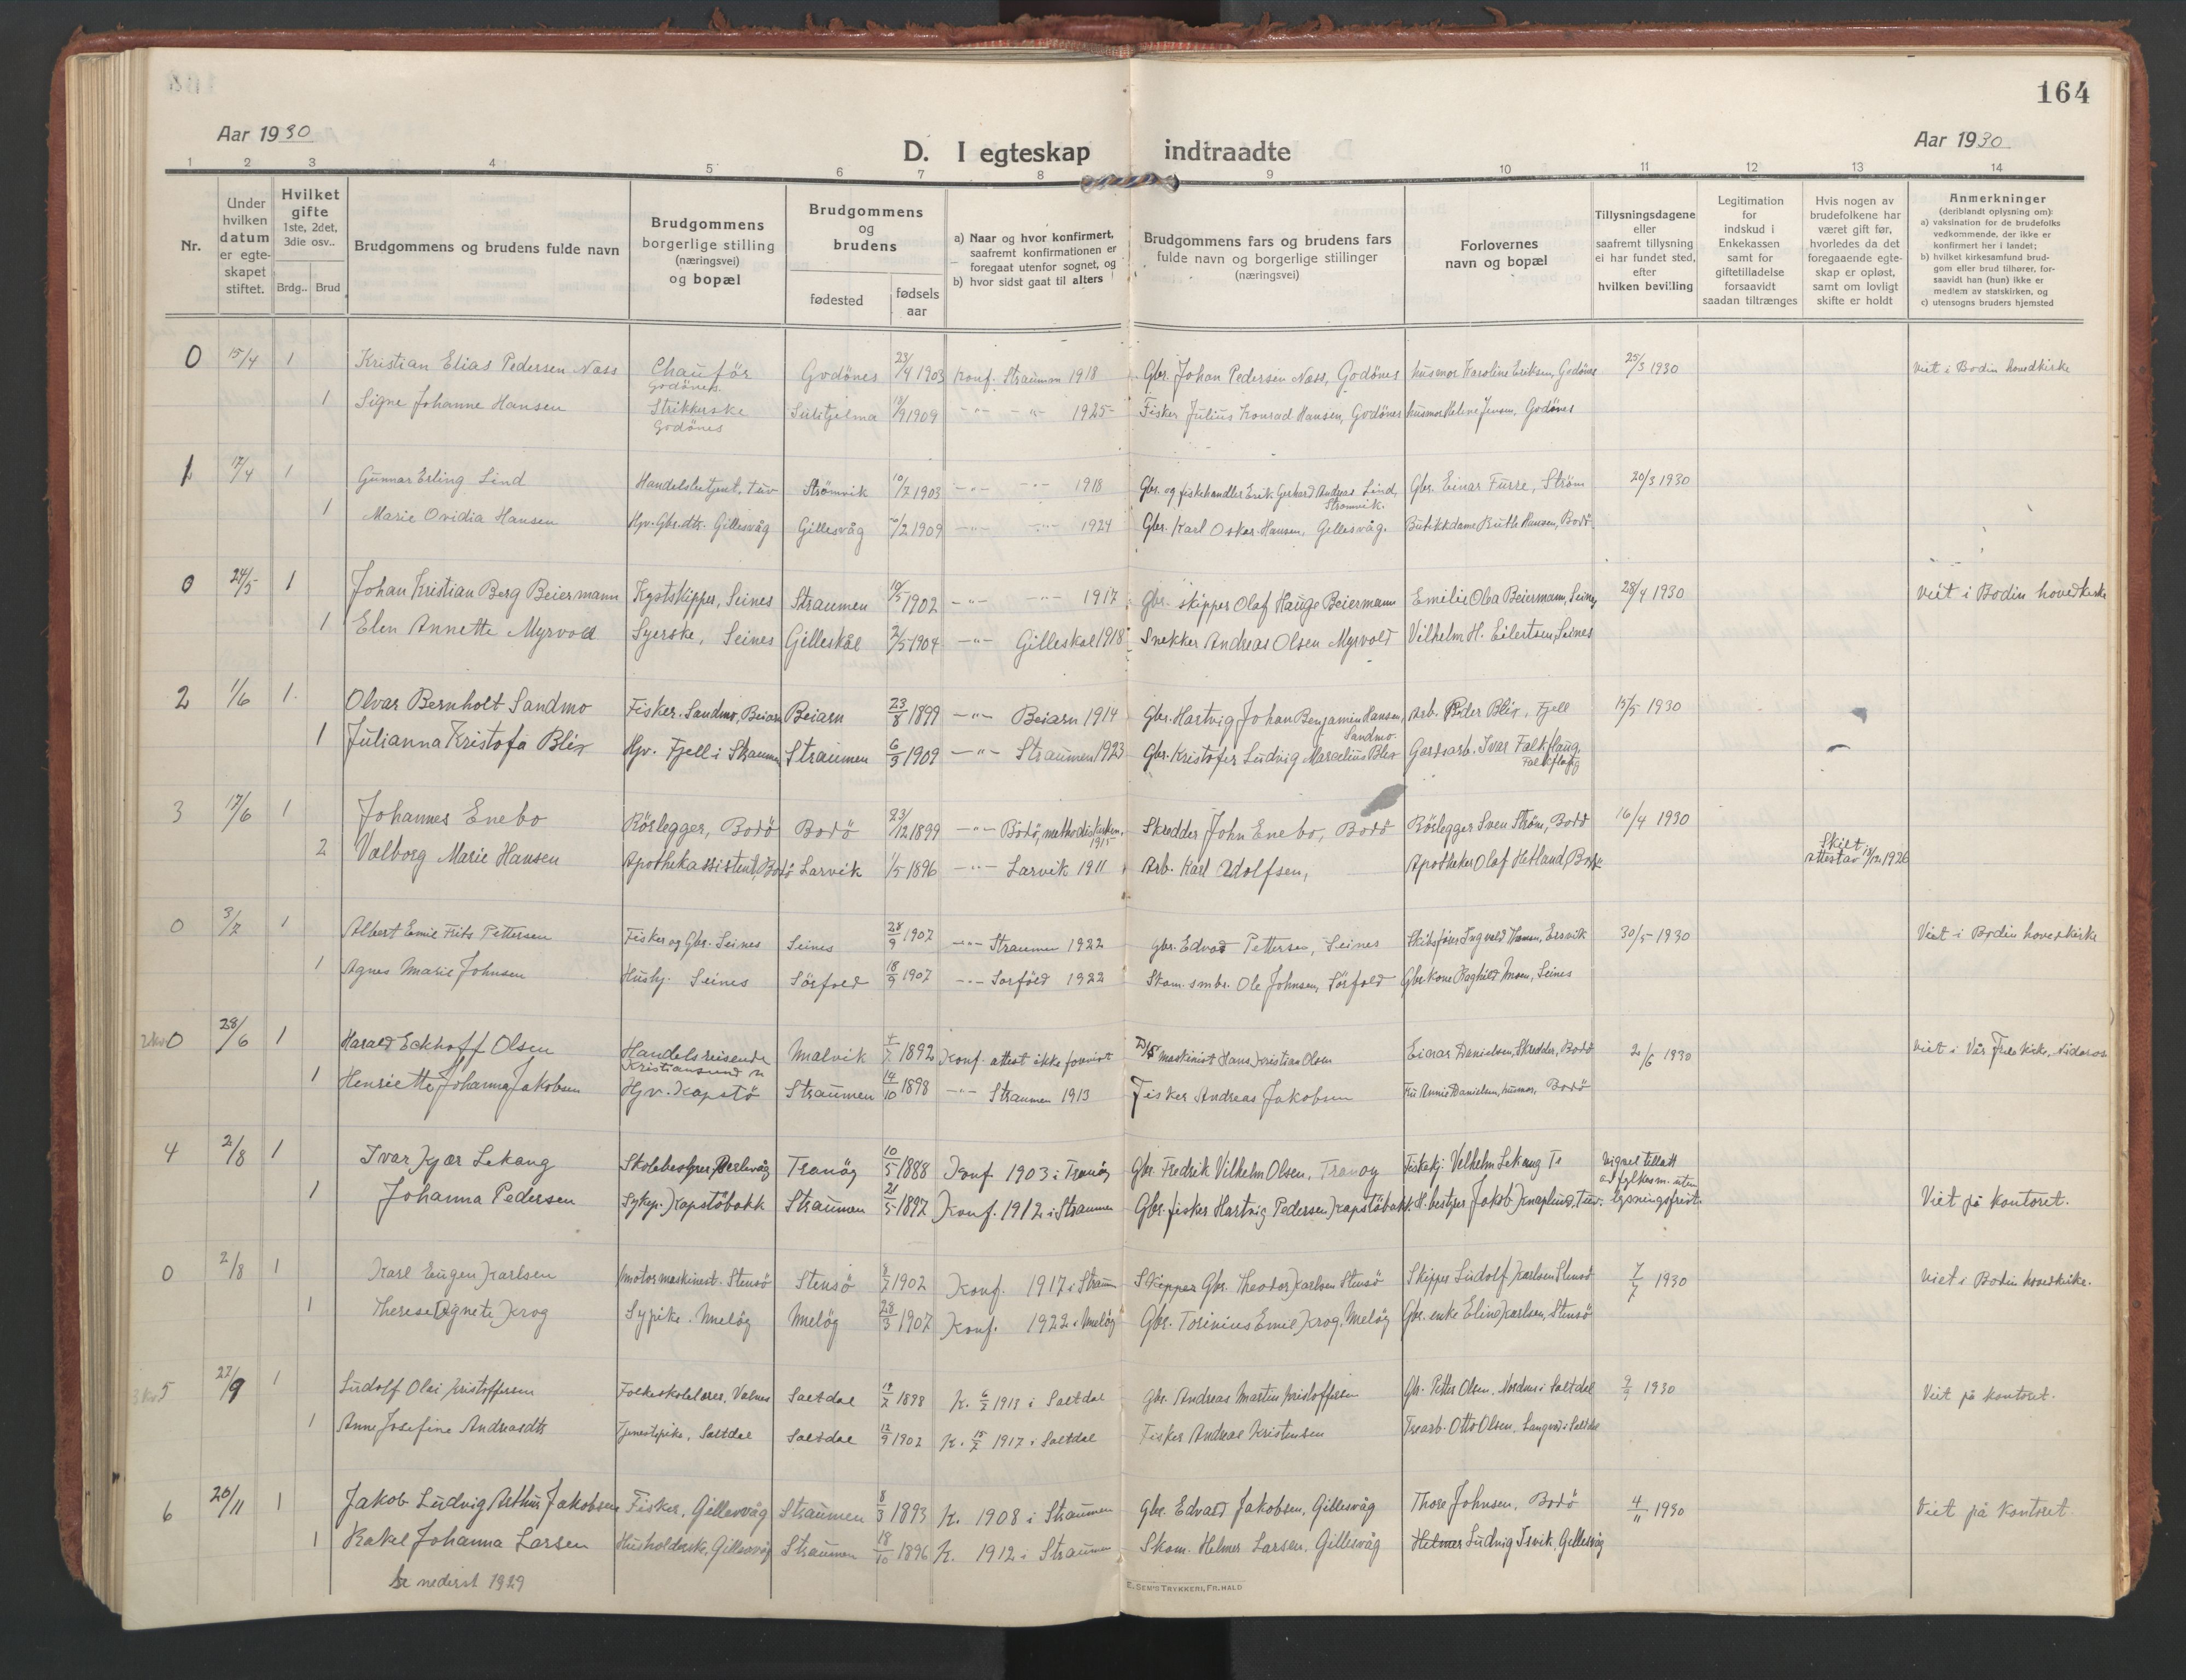 164
Aar 1930
D. I egteskap indtraadte
Aar 1930
1 2 3 4 5 6 7 8 9 10 11 12 13 14
Nr.
Under hvilken datum er egte-skapet stiftet.
Hvilket gifte 1ste, 2det, 3die osv..
Brdg.. Brud
Brudgommens og brudens fulde navn
Brudgommens borgerlige stilling (næringsvei) og bopæl
Brudgommens og brudens
fødested
fødsels aar
a) Naar og hvor konfirmert, saafremt konfirmationen er foregaat utenfor sognet, og
b) hvor sidst gaat til alters
Brudgommens fars og brudens fars fulde navn og borgerlige stiilinger (næringsvei)
Forlovernes navn og bopæl
Tillysningsdagene eller saafremt tillysning ei har fundet sted, efter hvilken bevilling
Legitimation for indskud i Enkekassen samt for giftetilladelse forsaavidt saadan tiltrænges
Hvis nogen av brudefolkene har været gift før, hvorledes da det foregaaende egte-skap er opløst, samt om lovligt skifte er holdt
Anmerkninger (deriblandt oplysning om):
a) vaksination for de brudefolks vedkommende, der ikke er konfirmert her i landet;
b) hvilket kirkesamfund brud-gom eller brud tilhører, for-saavidt han (hun) ikke er medlem av statskirken, og
c) utensogns bruders hjemsted
0 15/4 1 Kristian Elias Pedersen Næss Chauför Godönes Godönes 23/4 1903 Konf. Straumen 1918 Gbr. Johan Pedersen Næss, Godönes husmor Karoline Eriksen, Godönes 25/3 1930 Viet i Bodin hovedkirke
1 Signe Johanne Hansen Strikkerske Godönes Sulitjelma 19/9 1909 -"- -"- 1925 Fisker Julius Konrad Hansen, Godönes husmor Helene Jensen, Godönes
1 17/4 1 Gunnar Erling Lind Handelsbetjent, Tuv Strömvik 10/7 1903 -"- -"- 1918 Gbr. og fiskehandler Erik Gerhard Andreas Lind, Strömvik. Gbr. Einar Furre, Ström 20/3 1930
1 Marie Ovidia Hansen Hjv. Gbr.dtr. Gillesvåg Gillesvåg /2 1909 -"- -"- 1924 Gbr. Karl Oskar Hansen, Gillesvåg. Butikkdame Ruth Hansen, Bodö.
0 24/5 1 Johan Kristian Berg Beiermann Kystskipper, Seines Straumen 10/5 1902 -"- -"- 1917 Gbr. skipper Olaf Hauge Beiermann Emilie Olea Beiermann, Seines 28/4 1930 Viet i Bodin hovedkirke
1 Elen Annette Myrvold Syerske, Seines Gilleskål 2/5 1904 -"- Gilleskål 1918 Snekker Andreas Olsen Myrvold Vilhelm H. Eilertsen, Seines
2 1/6 1. Olvar Bernholt Sandmo Fisker. Sandmo, Beiarn Beiarn 23/8 1899 -"- Beiarn 1914 Gbr. Hartvig Johan Benjamin Hansen, Sandmo Arb. Peder Blix, Fjell 15/5 1930
1 Julianna Kristofa Blix Hjv. Fjell i Straumen Straumen 6/3 1909 -"- Straumen 1923 Gbr. Kristofer Ludvig Marcelius Blix Gardsarb. Ivar Falkflaug, Falkflaug
3 17/6 1 Johannes Enebo Rörlegger, Bodö Bodö 23/12 1899 -"- Bodö, methodistkirken, 1915 Skredder John Enebo, Bodö Rörlegger Sven Ström, Bodö 16/4 1930
2 Valborg Marie Hansen Apothekassistent, Bodö Larvik 1/5 1896 -"- Larvik 1911 Arb. Karl Adolfsen, Apotheker Olaf Hetland, Bodö Skilt, attest av 12/12 1926
0 3/7 1 Albert Emil Frits Pettersen Fisker og Gbr. Seines Seines 28/9 1907 -"- Straumen 1922 Gbr. Edvard Pettersen, Seines Skibsförer Ingvald Hansen, Eersvik 30/5 1930 Viet i Bodin hovedkirke
1 Agnes Marie Johnsen Hushj. Seines Sörfold 18/9 1907 -"- Sörfold 1922 Skom. smbr. Ole Johnsen, Sörfold Gbr kone Ragnhild Moen, Seines
0 28/6 1 Harald Eckhoff Olsen Handelsreisende Kristiansund n Malvik 4/7 1892 Konf. attest ikke forevist D/S maskinist Hans Kristian Olsen Einar Danielsen, Skredder, Bodö 2/6 1930 Viet i Vår Frue Kirke, Nidaros
1 Henriette Johanna Jakobsen Hjv. Kapstö Straumen 14/10 1898 -"- Straumen 1913 Fisker Andreas Jakobsen Fru Annie Danielsen, husmor, Bodö
4 2/8 1 Ivar Kjær Lekang Skolebestyrer, Berlevåg Tranöy 10/5 1888 Konf. 1903 i Tranöy Gbr. Fredrik Vilhelm Olsen, Tranöy Fiskekj. Velhelm Lekang Tr Vigsel tillatt av fylkesm. uten lysningsfrist.
1 Johanna Pedersen Sykepl. Kapstöbakk Straumen 21/5 1897 Konf. 1912 i Straumen Gbr. fisker Hartvig Pedersen Kapstöbakk. H. bestyrer Jakob Knaplund, Tuv. Viet på kontoret.
0 2/8 1 Karl Eugen Karlsen Motormaskinist. Stensö Stensö /7 1902 Konf. 1917 i Straum Skipper Gbr. Theodor Karlsen Stensö Skipper Ludolf Karlsen Stensö 7/7 1930 Viet i Bodin hovedkirke.
1 Therese Agnete Krog Sypike. Melöy Melöy 28/3 1907 Konf. 1922 i Melöy Gbr. Torinius Emil Krog, Melöy Gbr. enke Eline Karlsen, Stensö
5 27/9 1 Ludolf Olai Kristoffersen Folkeskolelærer, Valnes Saltdal 19/7 1898 K. 6/7 1913 i Saltdal Gbr. Andreas Martin Kristoffersen Gbr. Petter Olsen, Nordnes i Saltdal 9/9 1930 Viet på kontoret.
1 Anne Josefine Andreasdtr Tjenestepike, Saltdal Saltdal 12/9 1902 K. 15/7 1917 i Saltdal Fisker Andreas Kristensen Trearb. Otto Olsen. Langnes i Saltdal
6 20/11 1 Jakob Ludvig Arthur Jakobsen Fisker, Gillesvåg Straumen 8/3 1893 K. 1908 i Straumen Gbr. Edvard Jakobsen, Gillesvåg Thore Johnsen, Bodö 4/11 1930 Viet på kontoret.
1 Rakel Johanna Larsen Husholderske, Gillesvåg Straumen 18/10 1896 K. 1912 i Straumen Skom. Helmer Larsen, Gillesvåg Helmer Ludvig Isvik, Gillesvåg
Se nederst 1929
E. SEM'S TRYKKERI, FR.HALD